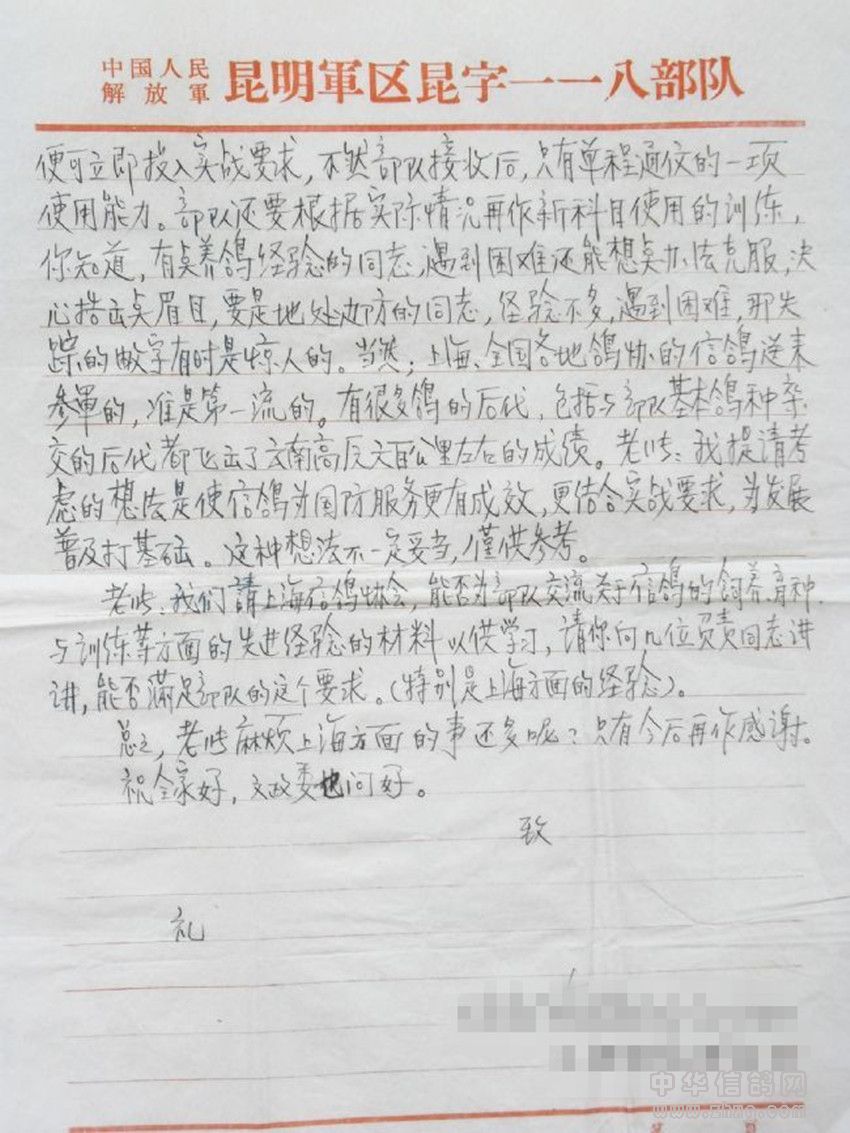 中国人民
解放軍
昆明軍区昆字一一八部队
便可立即投入实战要求，不然部队接收后，只有单程通仗的一项
使用能力。部队还要根据实际情况再作新科目使用的训练，
你知道，有点养鸽经验的同志，遇到困难还能想点办法克服，决
心搭出点眉目，要是地处边防的同志，经验不多，遇到困难，那失
踪的数字有时是惊人的。当然；上海、全国各地鸽协的信鸽送来
参軍的，准是第一流的。有很多鸽的后代，包括与部队基本鸽种杂
交的后代都飞出了云南高原六百公里左右的成绩。老：我提请考
虑的想法是使信鸽为国防服务更有成效，更结合实战要求，为发展
普及打基础。这种想法不一定妥当，僅供参考。
老：我们請上海信鸽协会，能否为部队交流关于信鸽的飼养、育种、
与训练等方面的先进经验的材料以供学习，请你向几位负责同志讲
讲，能否满足部队的这个要求。（特别是上海方面的经验）。
总之，老麻烦上海方面的事还多呢？只有今后再作感谢。
祝全家好，文政委也问好。
致
礼
中华信鸽网
www.zhxg.com
第 頁